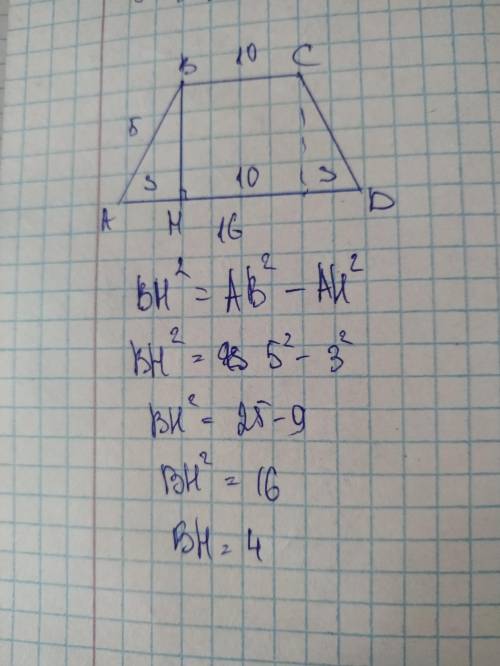 10
B C
5
3 10 3
A H D
16
BH² = AB² - AH²
BH² = 5² - 3²
BH² = 25 - 9
BH² = 16
BH = 4